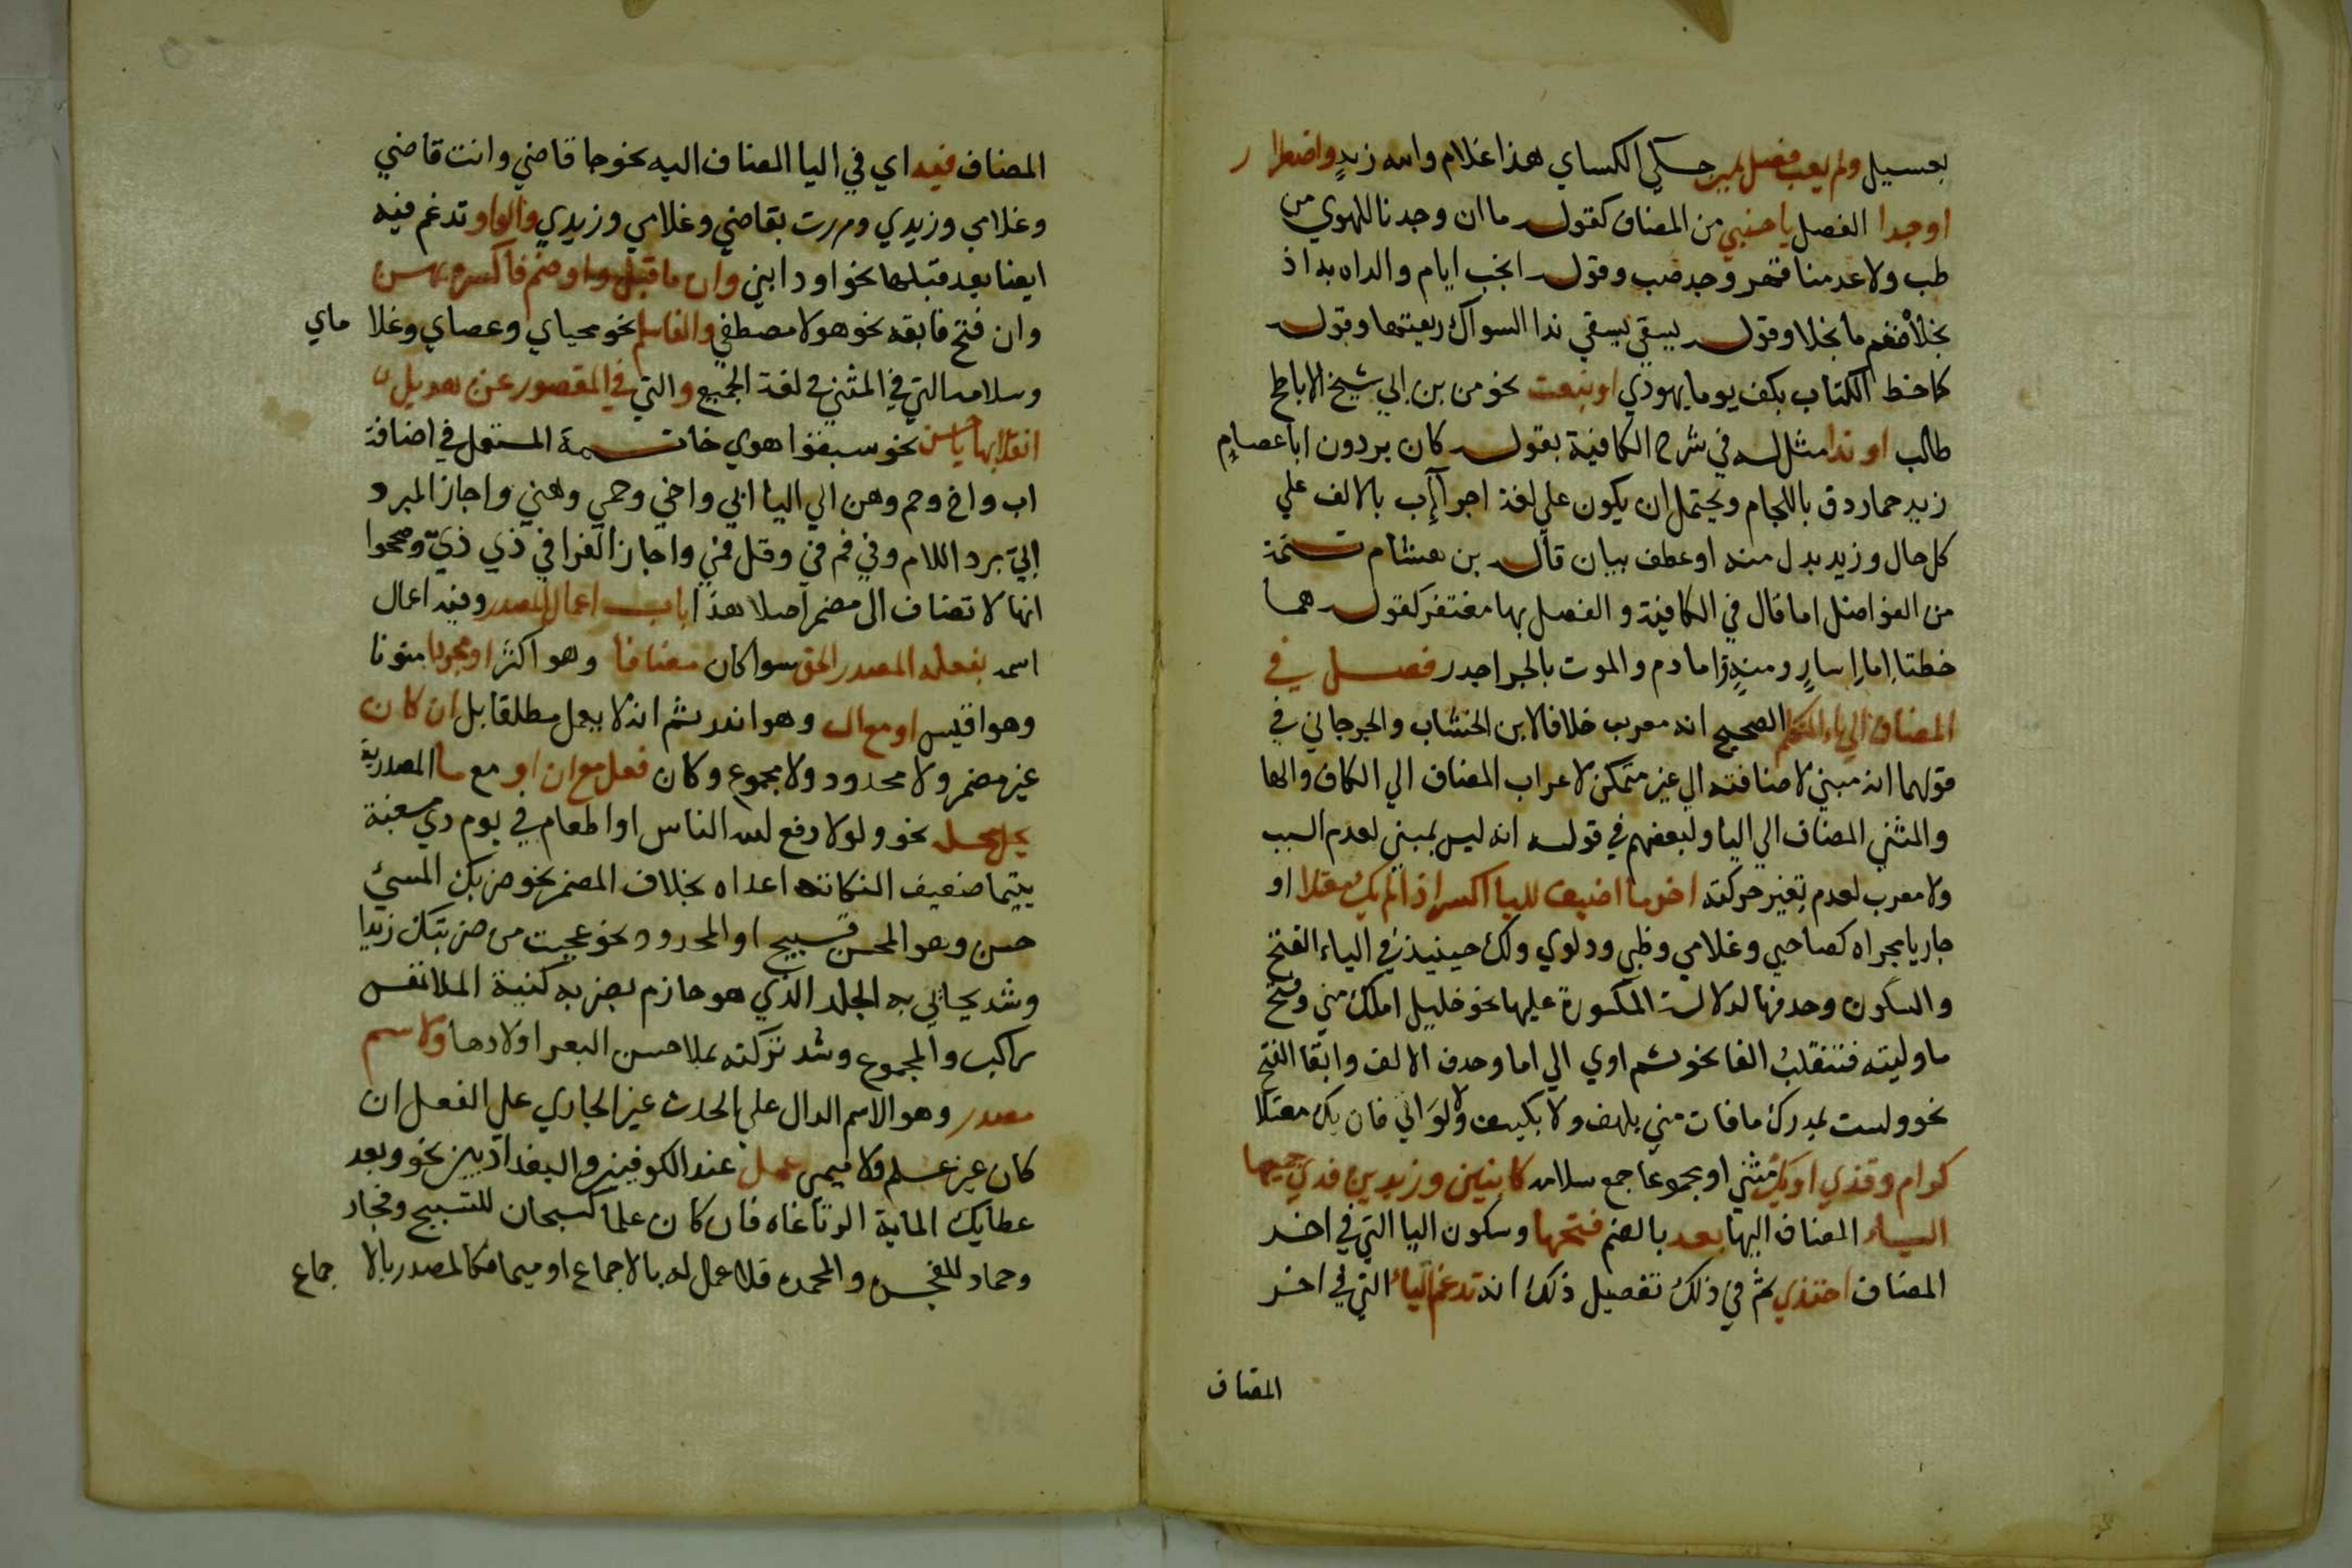 بعسيل ولم يعب فصل يمين حكي الكساي هذا غلام والله زيدٍ واضطرا ر
اوجدا الفصل باجنبي من المضاف كقوله ما ان وجدنا للهوي من
طب ولا عدمنا قهر وجد صب وقوله انجب ايام والداه به اذ
نجلاه فنعم ما نجلا وقوله يسقي ندا السواك ريقتها وقوله
كما خط الكتاب بكف يوما يهودي او بنعت نحو من بن ابي شيخ الاباطح
طالب او ندا مثل له في شرح الكافية بقوله كان بردون ابا عصام
زيد حمار دق باللجام ويحتمل ان يكون علي لغة اجرا اب بالالف علي
كل حال وزيد بدل منه او عطف بيان قاله بن هشام تتمة
من الفواصل اما قال في الكافية والفصل بها مغتفر كقوله هما
خطتا اما اسارٍ ومنةٍ واما دم والموت بالحر اجدر فصل في
المضاف الي ياء المتكلم الصحيح انه معرب خلافا لابن الخشاب والجرجاني في
قولهما انه مبني لاضافته الي غير متمكن لاعراب المضاف الي الكاف والها
والمثني المضاف الي اليا ولبعضهم في قوله انه ليس بمبني لعدم السبب
ولا معرب لعدم تغير حركته اخر ما اضيف لليا اكسر اذا لم يك معتلا او
جاريا مجراه كصاحبي وغلامي وظبي ودلوي ولك حينيذ في الياء الفتح
والسكون وحدفها لدلالت المكسورة عليها نحو خليل املك مني وفتح
ما وليته فتنقلب الفا نحو ثم اوي الي اما وحدف الالف وابقا الفتح
نحو ولست بمدرك ما فات مني بلهف ولا بليت ولا لواني فان يك معتلا
كرام وقذي او يك مثني او مجموعا جمع سلامه كابنين وزيدين فدي جميعها
الياء المضاف اليها بعد بالضم فتحها وسكون اليا التي في اخر
المضاف احتذي ثم في ذلك تفصيل ذكك انه تدغم الياء التي في اخر
المضاف
المضاف فيه اي في اليا المضاف اليه نحو جا قاضي وانت قاضي
وغلامي وزيدي ومررت بقاضي وغلامي وزيدي والواو تدغم فيه
ايضا بعد قبلها نحو اودا بني وان ما قبل واو ضم فاكسره يهن
وان فتح فابقه نحو هولا مصطفي والفا سلم نحو محياي وعصاي وغلا ماي
وسلامه التي في المثني في لغة الجميع والتي في المقصور عن هديل
انقلابها يا حسن نحو سبقوا هوي خاتمة المستعمل في اضافة
اب واخ وحم وهن الي اليا ابي واخي وحمي وهني واجاز المبرد
ابيّ برد اللام وفي فم في وقل فمي واجاز الفرا في ذي ذيّ وصححوا
انها لا تضاف الي مضمر اصلا هذا باب اعمال المصدر وفيه اعمال
اسمه بفعله المصدر الحق سوا كان مضافا وهو اكثر او مجردا منونا
وهو اقيس او مع ال وهو اندر ثم انه لا يعمل مطلقا بل ان كان
غير مضمر ولا محدود ولا مجموع وكان فعل مع ان او مع ما المصدرية
يحل محله نحو ولولا دفع لله الناس او اطعام في يوم دي مسغبة
يتيما ضعيف النكاته اعداه بخلاف المضمر نحو ضربك المسئ
حسن وهو المحسن قبيح او المحدود نحو عجبت من ضربتك زيدا
وشد يحايي به الجلد الذي هو حازم بضربه كفيه الملا نفس
راكب والمجموع وشد تركته بملاحسن البعر اولادها ولاسم
مصدر وهو الاسم الدال علي الحدث غير الجاري علي الفعل ان
كان غير علم ولا ميمي عمل عند الكوفيين والبغداديين نحو وبعد
عطايك الماية الرتاعاه فان كان علما كسبحان للتسبيح وفجار
وحماد للفجره والمحمده فلا عمل له بالاجماع او ميما فكالمصدر بالا جماع